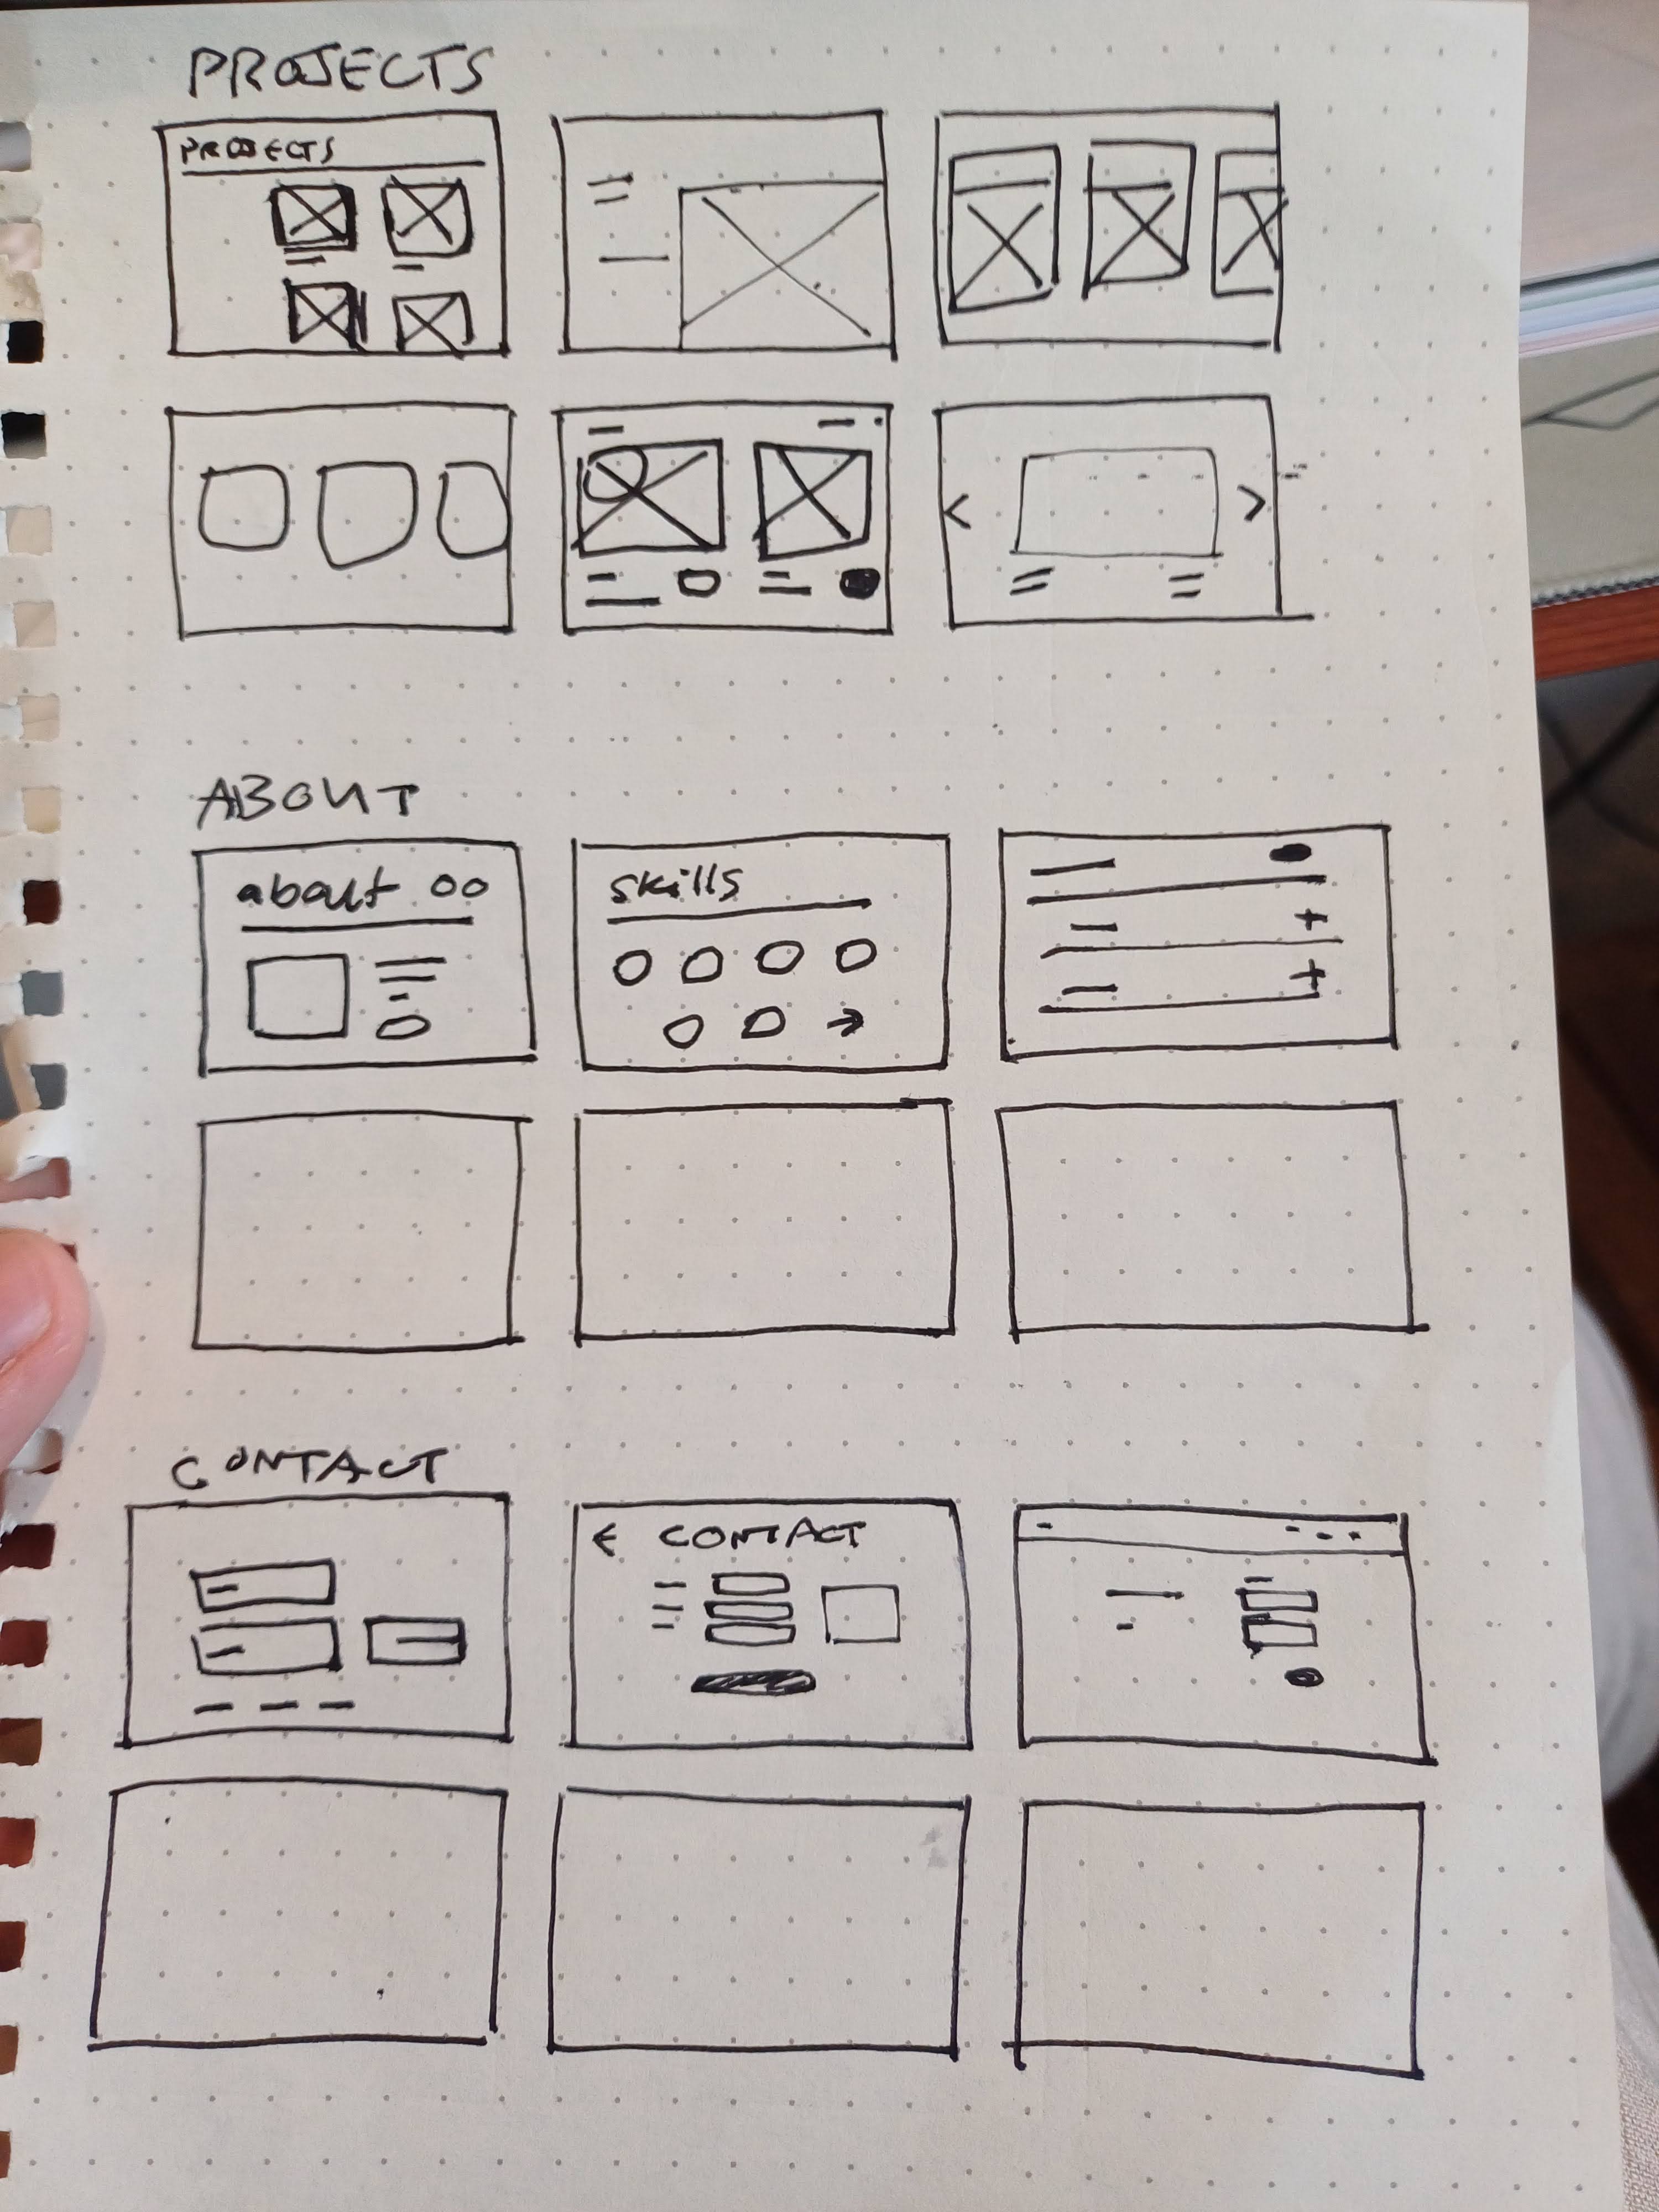 PROJECTS
PROJECTS
ABOUT
about
skills
CONTACT
CONTACT